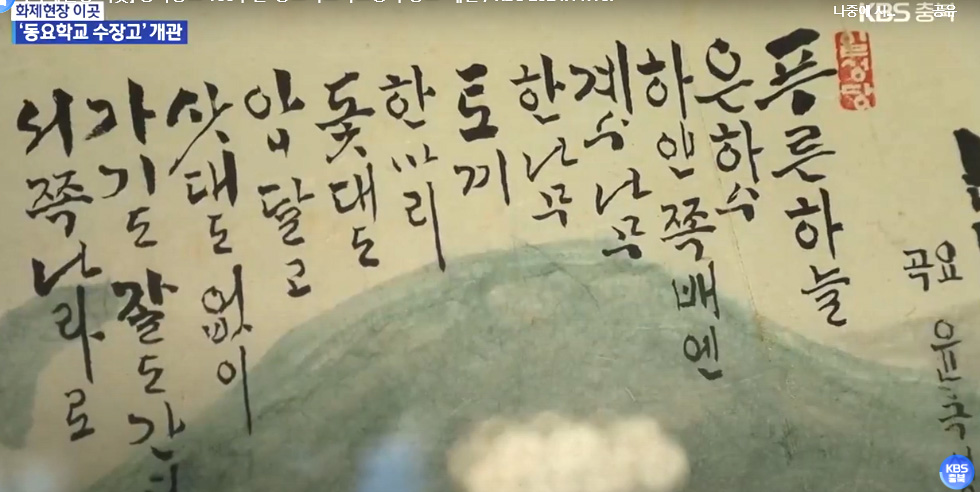 화제현장 이곳
'동요학교 수장고' 개관
나중에
공유
KBS 충북
곡요 윤극
푸른하늘
은하수
하얀쪽배엔
계수나무
한나무
토끼
한마리
돛대도
아니달고
삿대도없이
가기도잘도간
서쪽나라로
KBS
충북